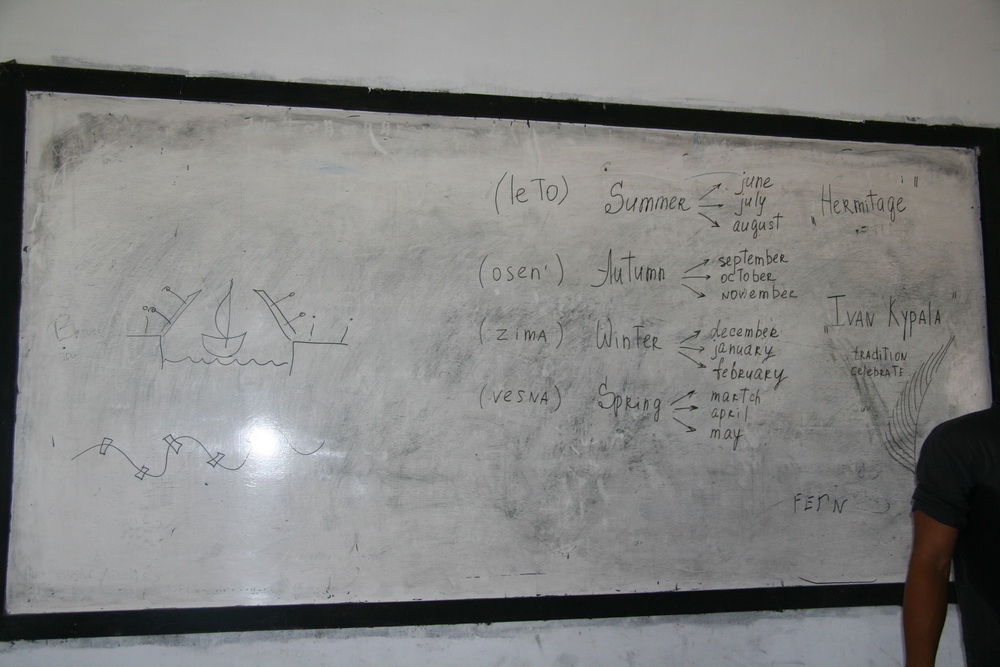 (leTO) Summer june
july
august
(osen') Autumn september
october
november
(zima) Winter december
january
february
(vesna) Spring martch
april
may
"Hermitage"
"Ivan Kypala"
tradition
celebrate
Fern